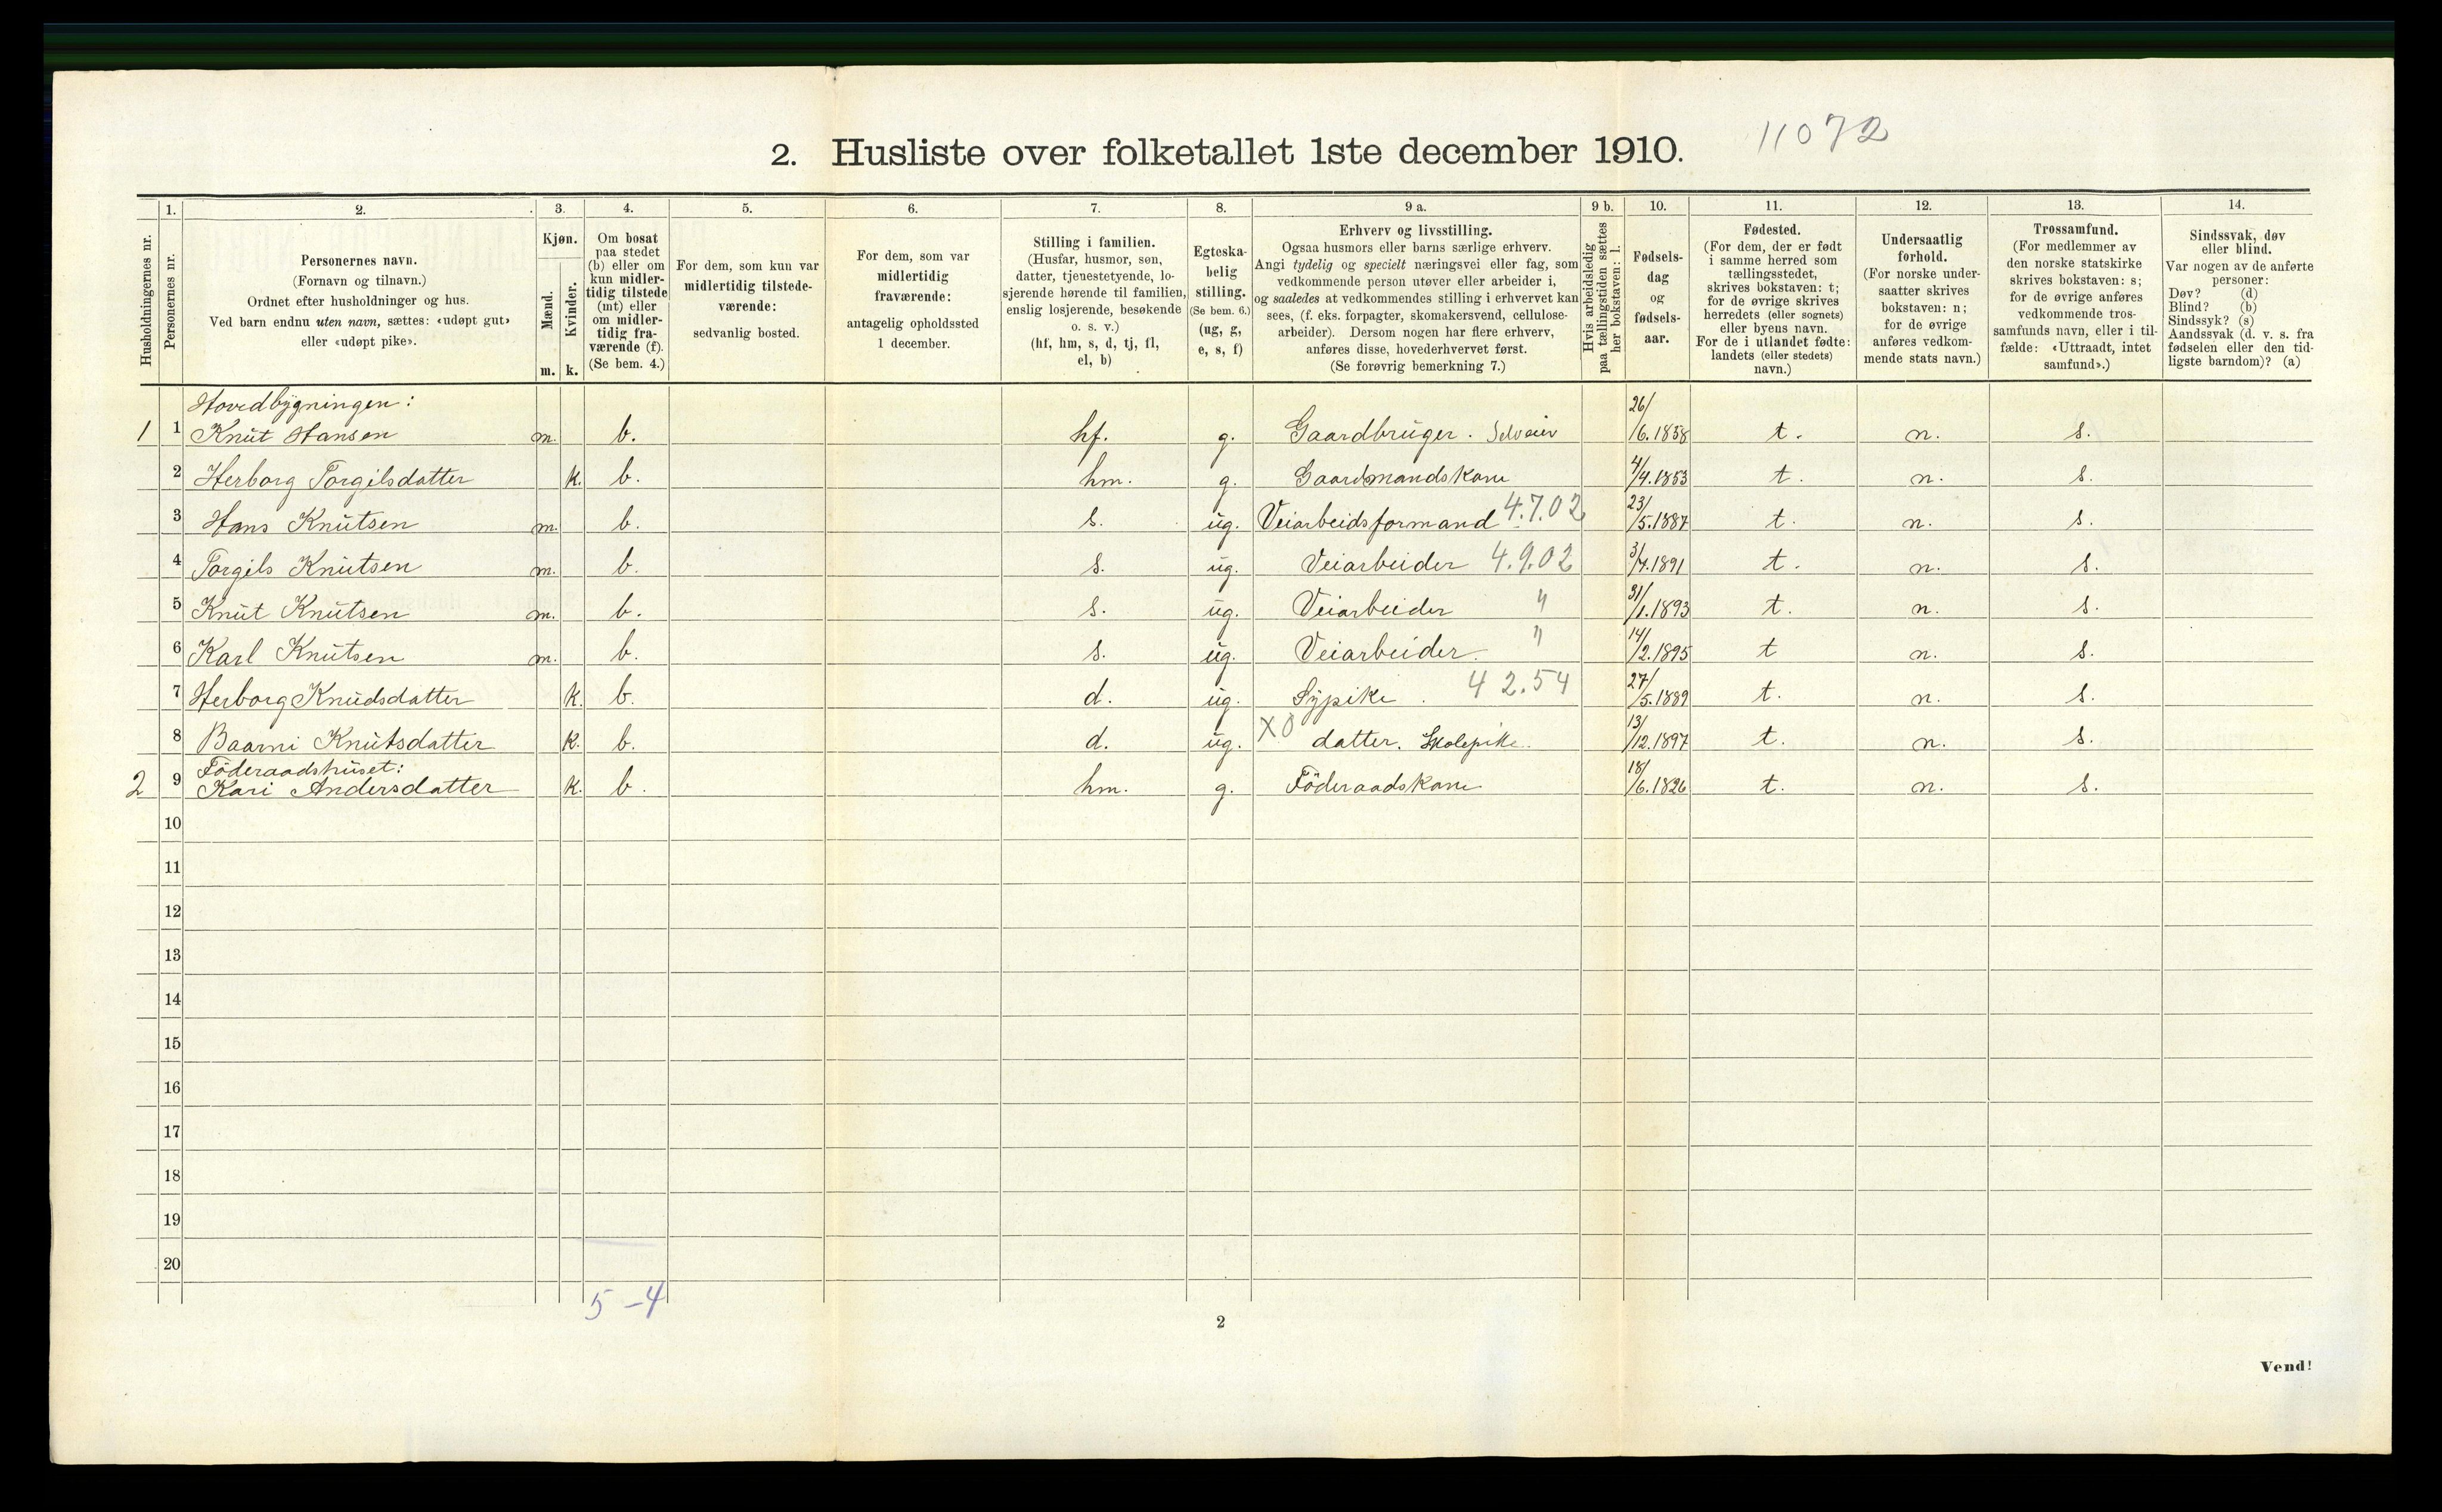 2. Husliste over folketallet 1ste december 1910.
11072
Husholdningernes nr.
1.
Personernes nr.
2.
Personernes navn.
(Fornavn og tilnavn.)
Ordnet efter husholdninger og hus.
Ved barn endnu uten navn, sættes: «udøpt gut»
eller «udøpt pike».
3.
Kjøn.
Mænd.
Kvinder.
m. k.
4.
Om bosat
paa stedet
(b) eller om
kun midler-
tidig tilstede
(mt) eller
om midler-
tidig fra-
værende (f).
(Se bem. 4.)
5.
For dem, som kun var
midlertidig tilstede-
værende:
sedvanlig bosted.
6.
For dem, som var
midlertidig
fraværende:
antagelig opholdssted
1 december.
7.
Stilling i familien.
(Husfar, husmor, søn,
datter, tjenestetyende, lo-
sjerende hørende til familien,
enslig losjerende, besøkende
o. s. v.)
(hf, hm, s, d, tj, fl,
el, b)
8.
Egteska-
belig
stilling.
(Se bem. 6.)
(ug, g,
e, s, f)
9 a.
Erhverv og livsstilling.
Ogsaa husmors eller barns særlige erhverv.
Angi tydelig og specielt næringsvei eller fag, som
vedkommende person utøver eller arbeider i,
og saaledes at vedkommendes stilling i erhvervet kan
sees, (f. eks. forpagter, skomakersvend, cellulose-
arbeider). Dersom nogen har flere erhverv,
anføres disse, hovederhvervet først.
(Se forøvrig bemerkning 7.)
9 b.
Hvis arbeidsledig
paa tællingstiden sættes
her bokstaven: l.
10.
Fødsels-
dag
og
fødsels-
aar.
11.
Fødested.
(For dem, der er født
i samme herred som
tællingsstedet,
skrives bokstaven: t;
for de øvrige skrives
herredets (eller sognets)
eller byens navn.
For de i utlandet fødte:
landets (eller stedets)
navn.)
12.
Undersaatlig
forhold.
(For norske under-
saatter skrives
bokstaven: n;
for de øvrige
anføres vedkom-
mende stats navn.)
13.
Trossamfund.
(For medlemmer av
den norske statskirke
skrives bokstaven: s;
for de øvrige anføres
vedkommende tros-
samfunds navn, eller i til-
fælde: «Uttraadt, intet
samfund».)
14.
Sindssvak, døv
eller blind.
Var nogen av de anførte
personer:
Døv? (d)
Blind? (b)
Sindssyk? (s)
Aandssvak (d. v. s. fra
fødselen eller den tid-
ligste barndom)? (a)
Hovedbygningen:
1 1 Knut Hansen m. b. hf. g. Gaardbruger. Selveier 26/6.1858 t. n. s.
2 Herborg Torgilsdatter k. b. hm. g. Gaardmandskone 4/4.1853 t. n. s.
3 Hans Knutsen m. b. s. ug. Veiarbeidsformand 4.7.02 23/5.1887 t. n. s.
4 Torgils Knutsen m. b. s. ug. Veiarbeider 4.9.02 3/4.1891 t. n. s.
5 Knut Knutsen m. b. s. ug. Veiarbeider " 31/1.1893 t. n. s.
6 Karl Knutsen m. b. s. ug. Veiarbeider. " 14/2.1895 t n. s.
7 Herborg Knudsdatter k. b. d. ug. Sypike. 42.54 27/5.1889 t. n. s.
8 Baarni Knutsdatter k. b. d. ug. X0 datter. Skolepike. 13/12.1897 t. n. s.
Föderaadshuset:
2 9 Kari Andersdatter k. b. hm. g. Föderaadskone 18/6.1826 t. n. s.
10
11
12
13
14
15
16
17
18
19
20
5-4
2
Vend!